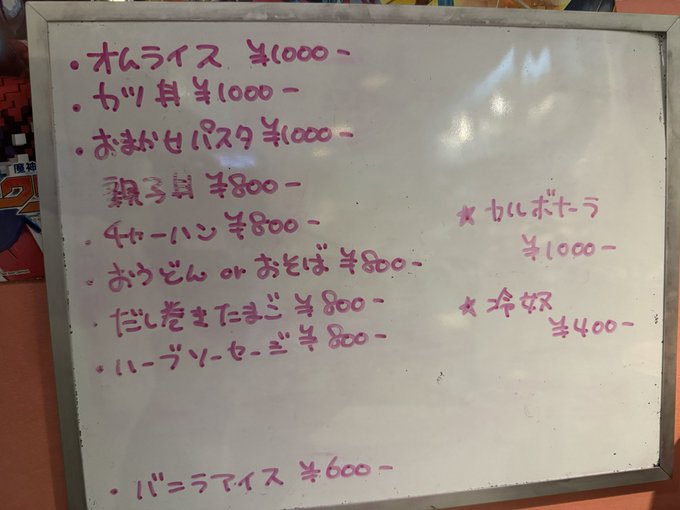 ・オムライス ¥1000-
・カツ丼 ¥1000-
・おまかせパスタ ¥1000-
親子丼 ¥800-
・チャーハン ¥800-
・おうどん or おそば ¥800-
・だし巻きたまご ¥800-
・ハーブソーセージ ¥800-
・バニラアイス ¥600-
★カルボナーラ
¥1000-
★冷奴
¥400-
魔神